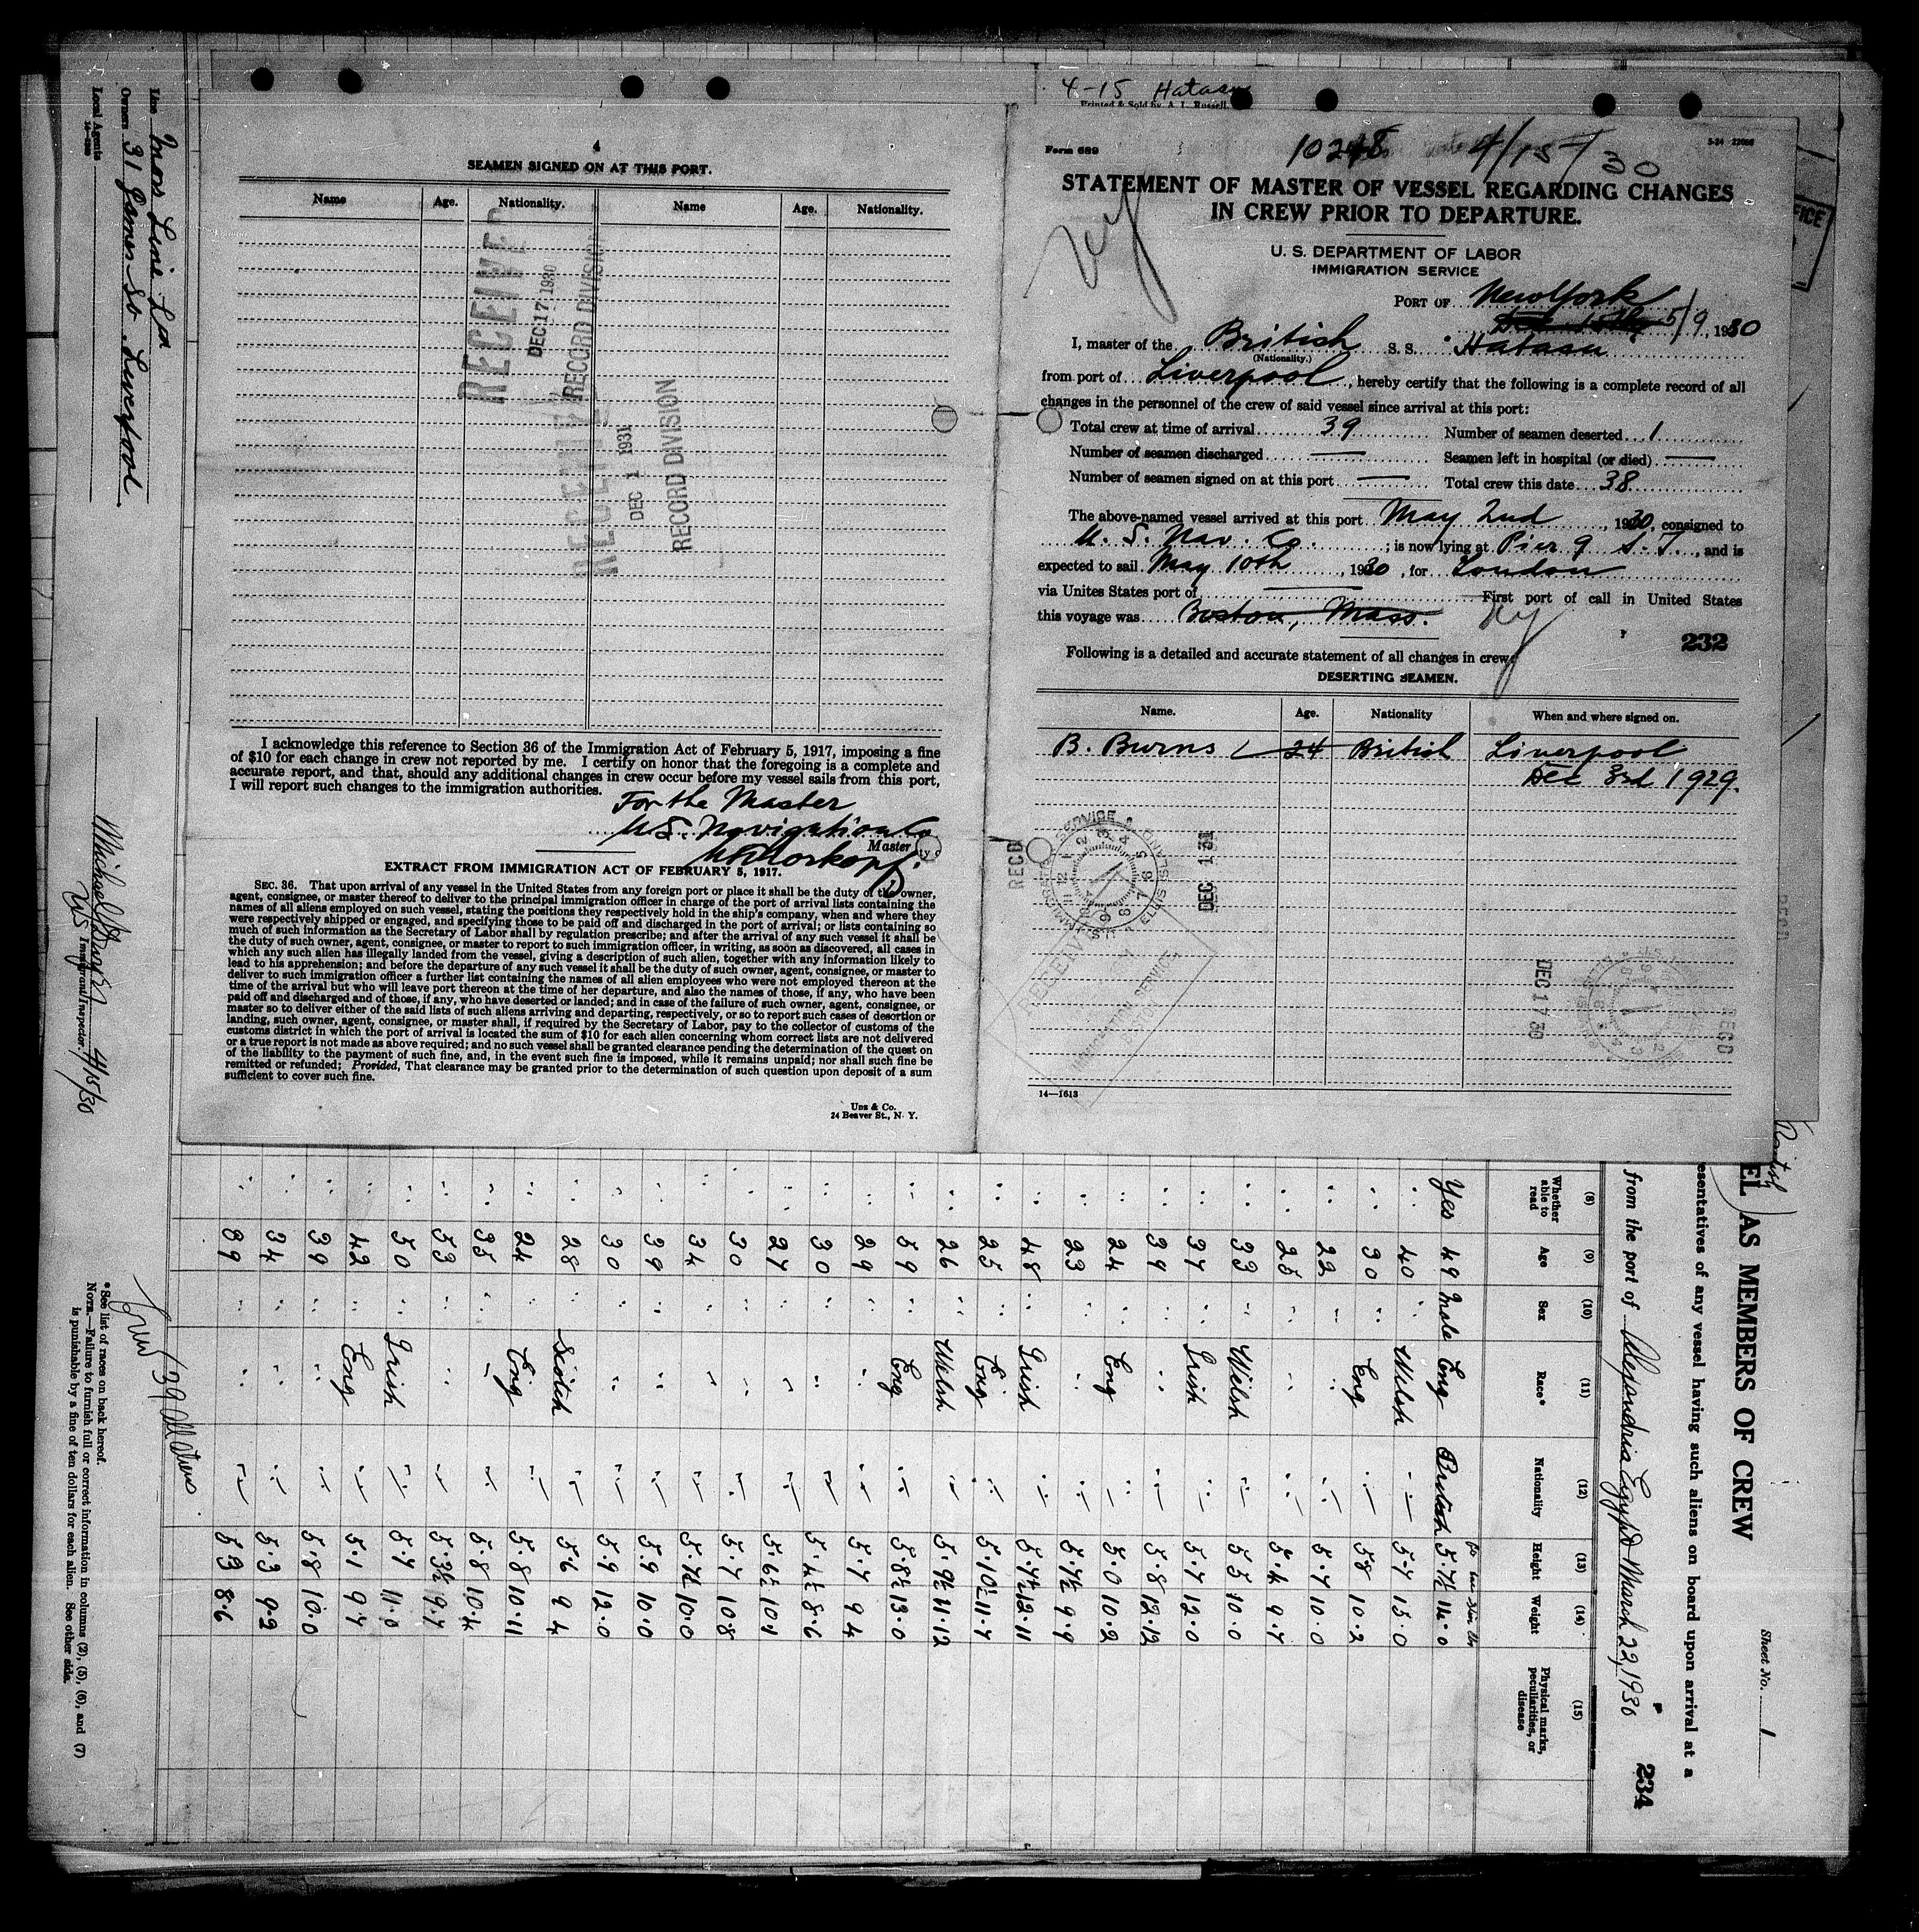 4-15 Hatasu
Printed & Sold by A. L. Russell,
4
SEAMEN SIGNED ON AT THIS PORT.
Name Age. Nationality. Name Age. Nationality.
RECEIVED
DEC 17 1930
RECORD DIVISION
RECEIVED
DEC 1 1931
RECORD DIVISION
I acknowledge this reference to Section 36 of the Immigration Act of February 5, 1917, imposing a fine
of $10 for each change in crew not reported by me. I certify on honor that the foregoing is a complete and
accurate report, and that, should any additional changes in crew occur before my vessel sails from this port,
I will report such changes to the immigration authorities.
For the Master
U.S. Navigation Co
Master
EXTRACT FROM IMMIGRATION ACT OF FEBRUARY 5, 1917.
SEC. 36. That upon arrival of any vessel in the United States from any foreign port or place it shall be the duty of the owner,
agent, consignee, or master thereof to deliver to the principal immigration officer in charge of the port of arrival lists containing the
names of all aliens employed on such vessel, stating the positions they respectively hold in the ship's company, when and where they
were respectively shipped or engaged, and specifying those to be paid off and discharged in the port of arrival; or lists containing so
much of such information as the Secretary of Labor shall by regulation prescribe; and after the arrival of any such vessel it shall be
the duty of such owner, agent, consignee, or master to report to such immigration officer, in writing, as soon as discovered, all cases in
which any such alien has illegally landed from the vessel, giving a description of such alien, together with any information likely to
lead to his apprehension; and before the departure of any such vessel it shall be the duty of such owner, agent, consignee, or master to
deliver to such immigration officer a further list containing the names of all alien employees who were not employed thereon at the
time of the arrival but who will leave port thereon at the time of her departure, and also the names of those, if any, who have been
paid off and discharged and of those, if any, who have deserted or landed; and in case of the failure of such owner, agent, consignee, or
master so to deliver either of the said lists of such aliens arriving and departing, respectively, or so to report such cases of desertion or
landing, such owner, agent, consignee, or master shall, if required by the Secretary of Labor, pay to the collector of customs of the
customs district in which the port of arrival is located the sum of $10 for each alien concerning whom correct lists are not delivered
or a true report is not made as above required; and no such vessel shall be granted clearance pending the determination of the quest on
of the liability to the payment of such fine, and, in the event such fine is imposed, while it remains unpaid; nor shall such fine be
remitted or refunded; Provided, That clearance may be granted prior to the determination of such question upon deposit of a sum
sufficient to cover such fine.
UNZ & CO.
24 Beaver St., N. Y.
Form 689
10248 4/15/30
5-24 22066
STATEMENT OF MASTER OF VESSEL REGARDING CHANGES
IN CREW PRIOR TO DEPARTURE.
U. S. DEPARTMENT OF LABOR
IMMIGRATION SERVICE
PORT OF New York
5/9, 1930
I, master of the British S. S. Hatasu
(Nationality.)
from port of Liverpool, hereby certify that the following is a complete record of all
changes in the personnel of the crew of said vessel since arrival at this port:
Total crew at time of arrival 39 Number of seamen deserted 1
Number of seamen discharged — Seamen left in hospital (or died) —
Number of seamen signed on at this port — Total crew this date 38
The above-named vessel arrived at this port May 2nd, 1930, consigned to
U. S. Nav. Co. ; is now lying at Pier 9 S. I., and is
expected to sail May 10th, 1930, for London
via Unites States port of — First port of call in United States
this voyage was Boston, Mass.
232
Following is a detailed and accurate statement of all changes in crew:
DESERTING SEAMEN.
Name. Age. Nationality When and where signed on.
B. Burns 24 British Liverpool
Dec 3rd 1929.
RECD
DEC 1 31
DEC 17 30
RECD
14—1613
Line Moss Line Ltd
Owners 31 James St. Liverpool
Local Agents
US Immigrant Inspector. 4/15/30
EL AS MEMBERS OF CREW
Sheet No. 1
esentatives of any vessel having such aliens on board upon arrival at a
from the port of Alexandria Egypt March 22, 1930
234
(8) (9) (10) (11) (12) (13) (14) (15)
Whether able to read Age Sex Race* Nationality Height Weight Physical marks, peculiarities, or disease
Yes 49 Male Eng British 5.7½ 14.0
40 Welsh 5.7 15.0
30 Eng 5.8 10.2
22 5.7 10.0
25 5.4 9.7
33 Welsh 5.5 10.0
37 Irish 5.7 12.0
39 5.8 12.12
24 Eng 5.0 10.2
23 5.7½ 9.9
48 Irish 5.7½ 12.11
25 Eng 5.10½ 11.7
26 Welsh 5.9½ 11.12
59 Eng 5.8½ 13.0
29 5.7 9.4
30 5.4½ 8.6
27 5.6½ 10.1
30 5.7 10.8
34 5.7½ 10.0
39 5.9 10.0
30 5.9 12.0
28 Scotish 5.6 9.4
24 Eng 5.8 10.11
35 5.8 10.4
53 5.3½ 9.7
50 Irish 5.7 11.0
42 Eng 5.1 9.7
39 5.8 10.0
34 5.3 9.2
89 5.3 8.6
Crew 39 All Aliens
*See list of races on back hereof.
NOTE.—Failure to furnish full or correct information in columns (2), (5), (6), and (7)
is punishable by a fine of ten dollars for each alien. See other side.